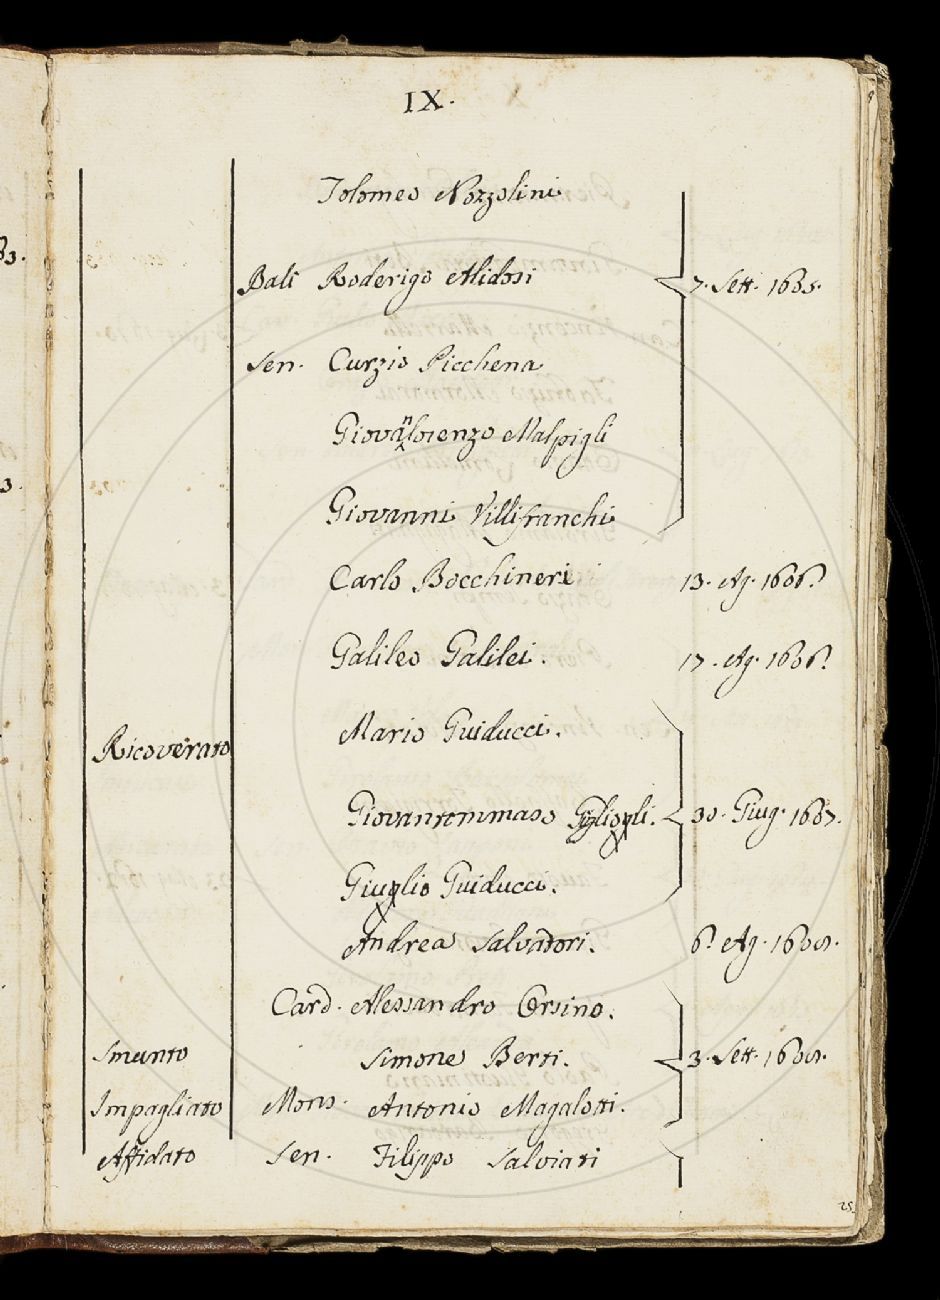 IX.
Tolomeo Nozzolini
Balì Roderigo Alidosi 7. Sett. 1605.
Sen. Curzio Picchena
Giovanlorenzo Malpigli
Giovanni Villifranchi
Carlo Bocchineri 13. Ag. 1606.
Galileo Galilei. 17. Ag. 1606.
Mario Guiducci.
Ricoverato
Giovantommaso 30. Giug. 1607.
Giuglio Guiducci.
Andrea Salvadori. 6. Ag.
Card. Alessandro Orsino.
Smunto Simone Berti. 3. Sett.
Impagliato Mons. Antonio Magalotti.
Affidato Sen. Filippo Salviati
25.